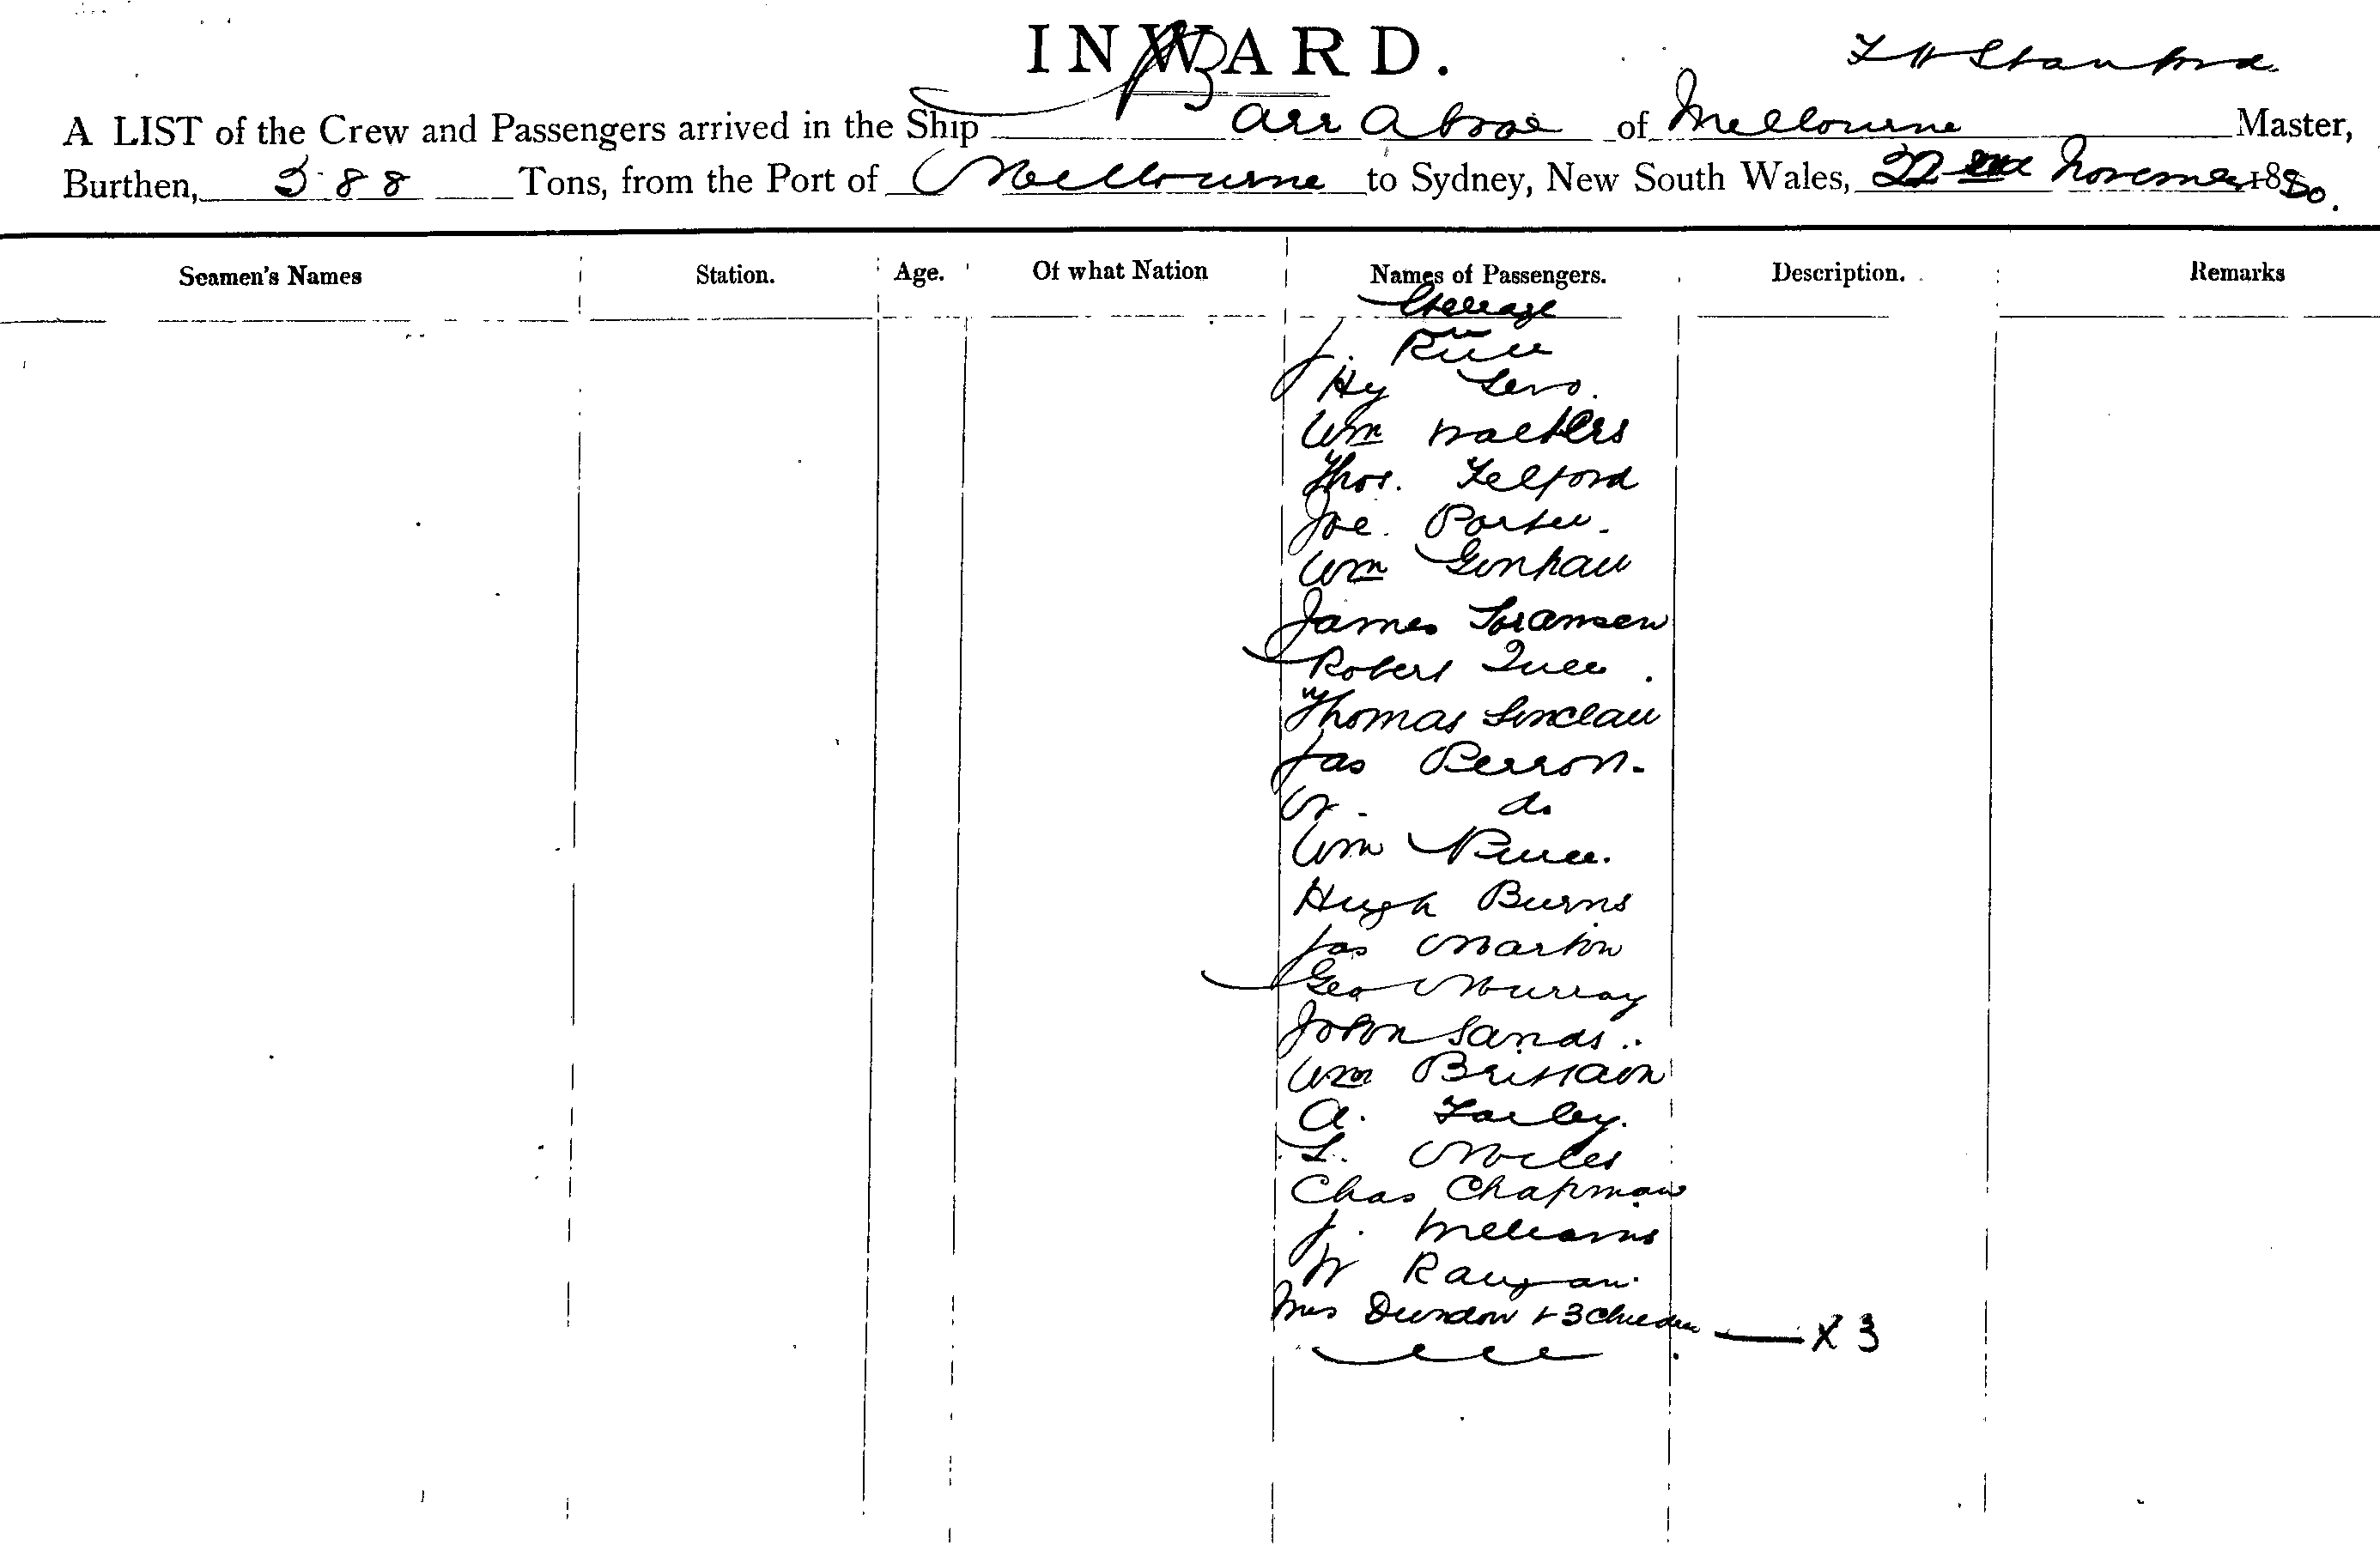 INWARD.
A LIST of the Crew and Passengers arrived in the Ship Arr Above of Melbourne Master,
Burthen, 588 Tons, from the Port of Melbourne to Sydney, New South Wales, 22nd November 1880.
Seamen's Names Station. Age. Of what Nation Names of Passengers. Description. Remarks
Steerage
J.
Hy
Wm Walters
Thos. Telford
Joe. Porter.
Wm
James Soransen
Robert
Thomas Sinclair
Jas Perron.
W. do
Wm
Hugh Burns
Jas Martin
Geo Murray
John Sands
Wm Brittain
A. Farley.
L. Miles
Chas Chapman
J. Williams
W
Mrs Dundon + 3 Children X 3